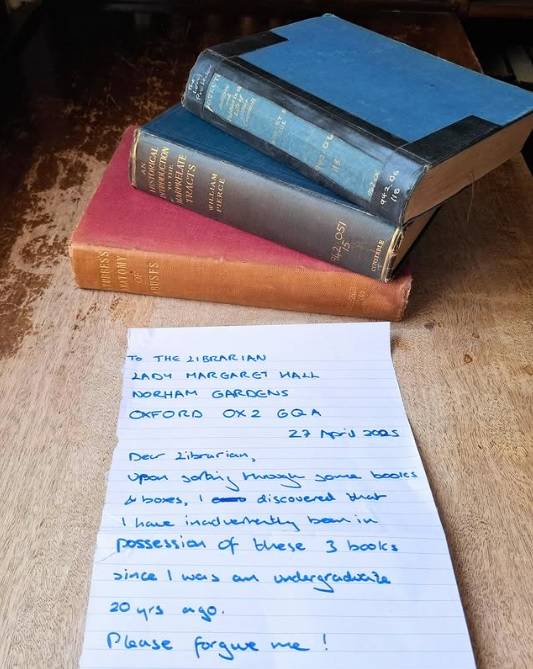 942.06
118
AN
HISTORICAL
INTRODUCTION
TO THE
MARPRELATE
TRACTS
WILLIAM
PIERCE
942.051
15
CONSTABLE
OF
TO THE LIBRARIAN
LADY MARGARET HALL
NORHAM GARDENS
OXFORD OX2 6QA
27 April 2025
Dear Librarian,
Upon sorting through some books
& boxes, I discovered that
I have inadvertently been in
possession of these 3 books
since I was an undergraduate
20 yrs ago.
Please forgive me!